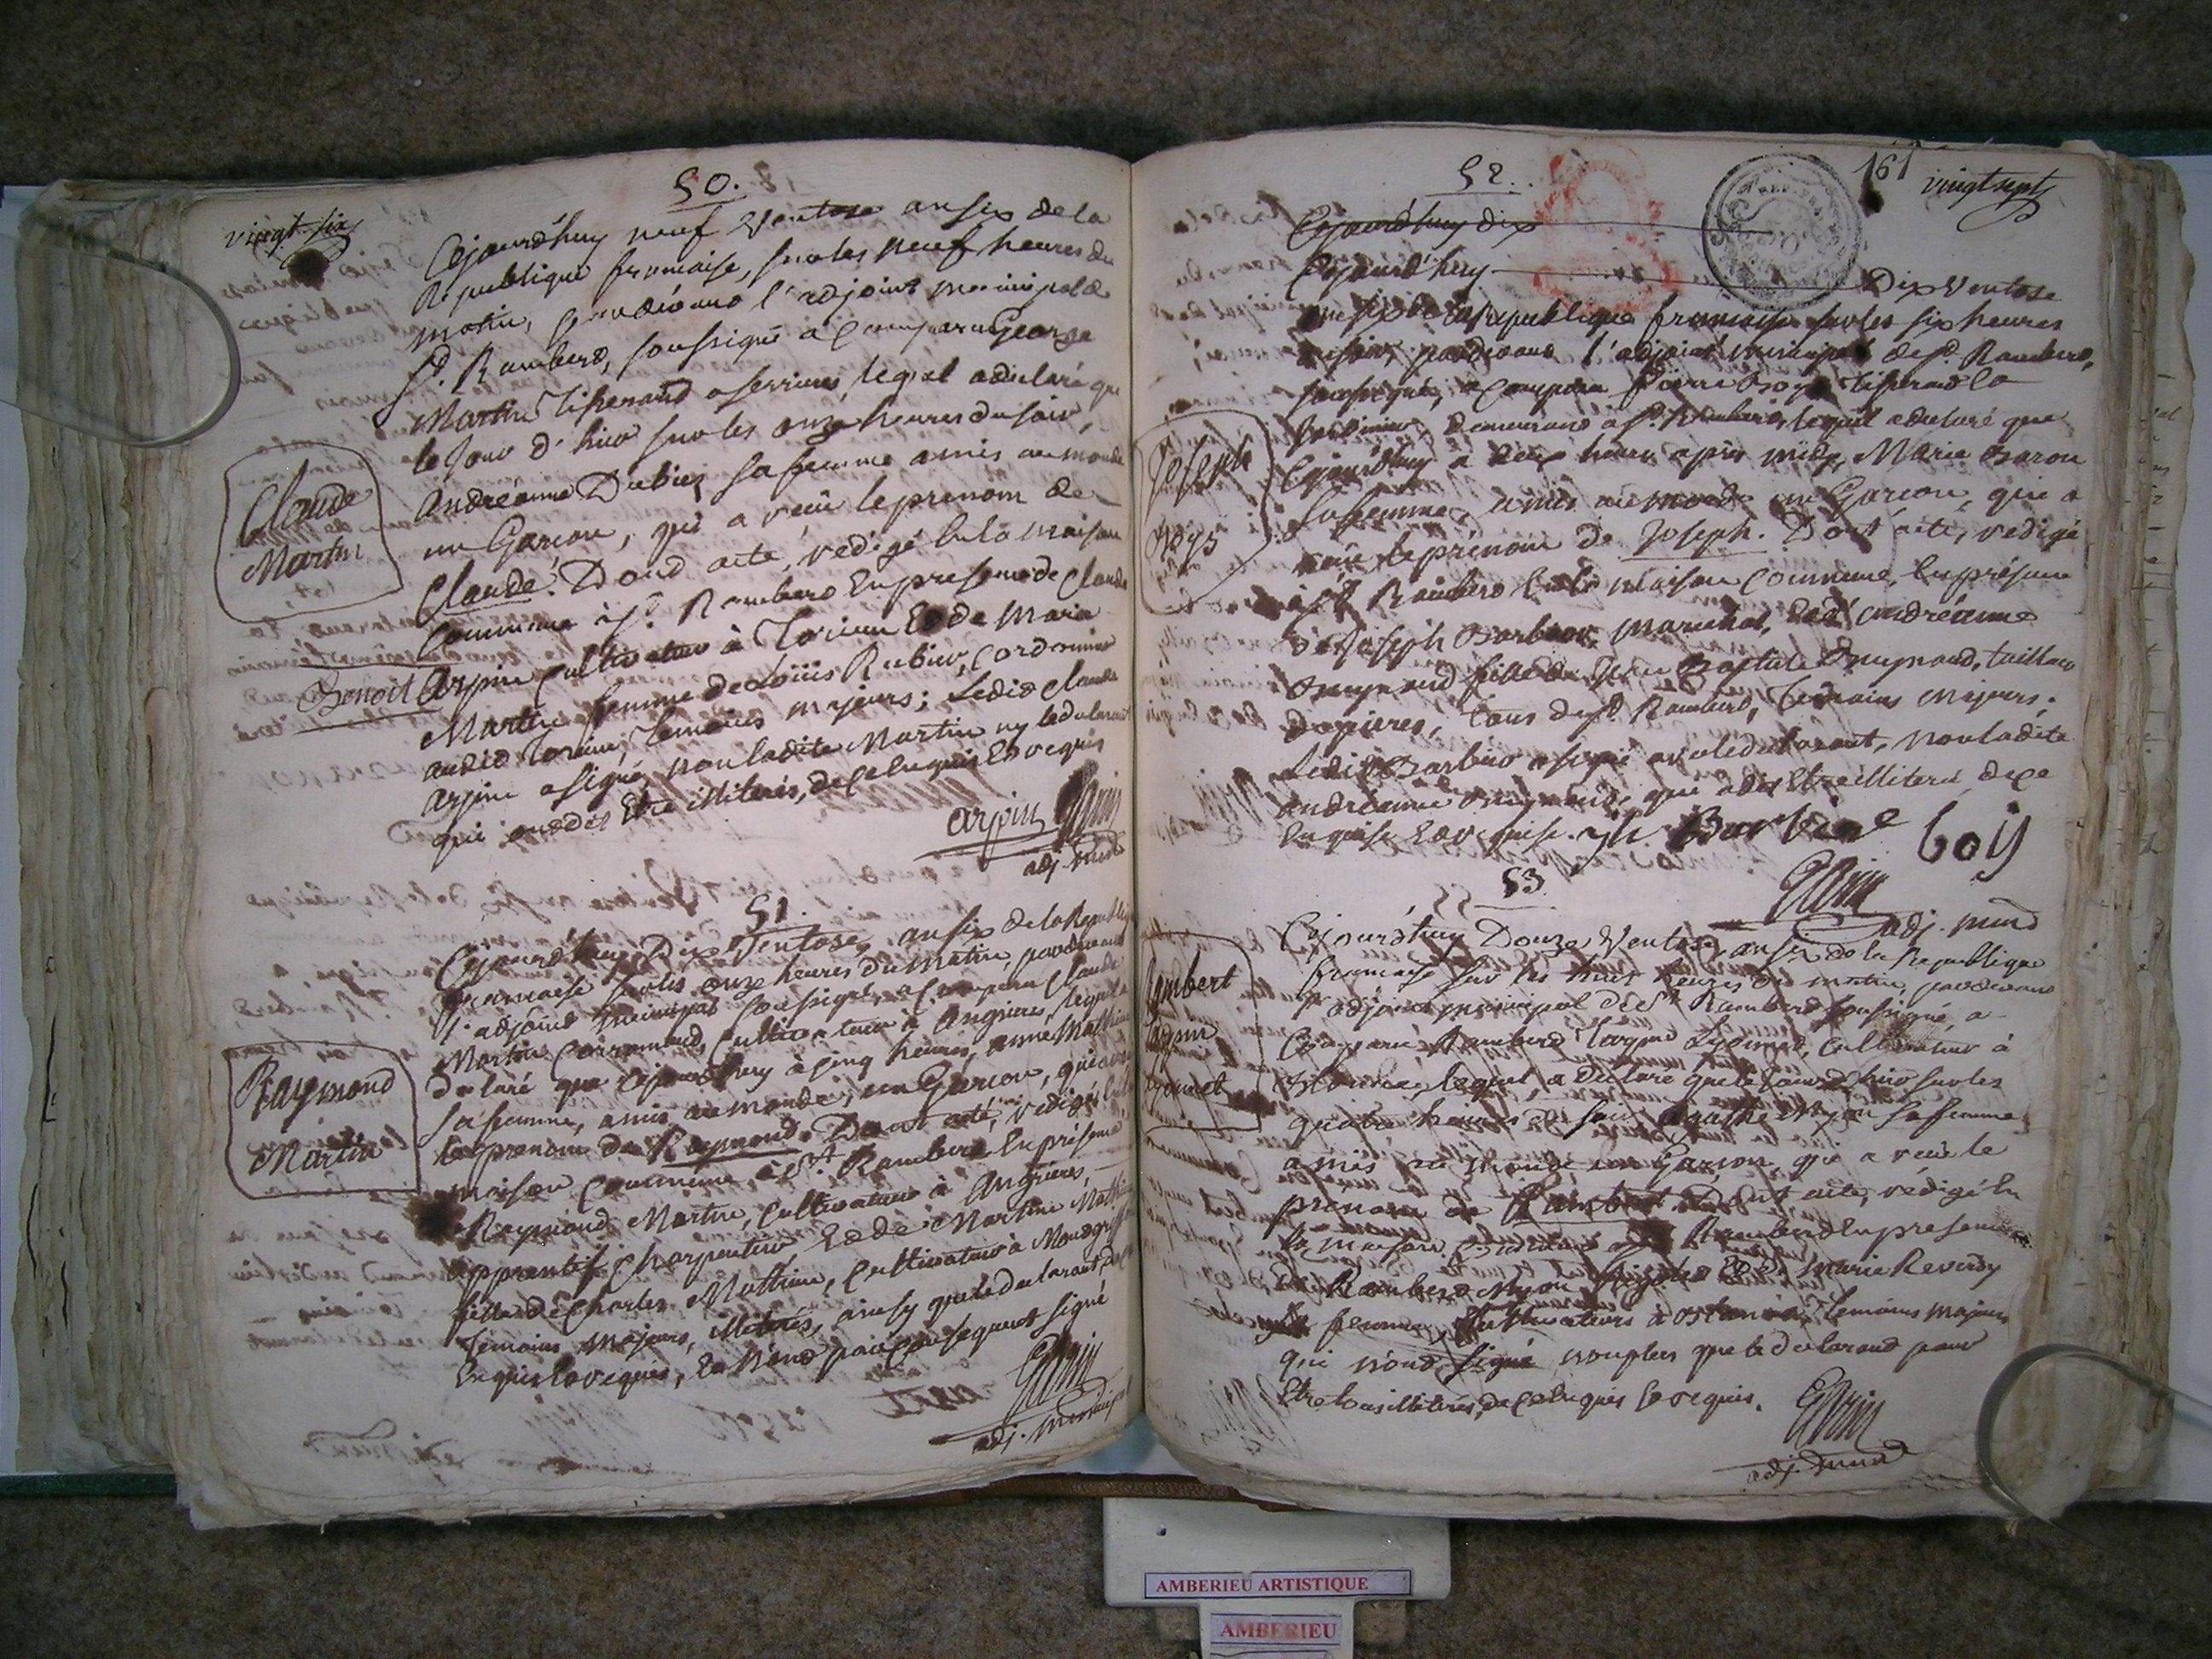 vingt-six
50.
Cejourd'huy neuf Ventose an six de la
Republique francaise, sur les neuf heures du
matin, pardevant l'adjoint municipal de
St. Rambert, soussigné a comparu George
Martin Tisserand a lequel a déclaré que
le jour d'hier sur les onze heures du soir,
andréanne Dubiez sa femme a mis au monde
un Garcon, qui a reçu le prenom de
Claude. Dont acte, redigé En la maison
Commune à St. Rambert En presence de Claude
Benoit Arpin Cultivateur à Torcieu Et de Maria
Martin femme de Loüis Rubier, Cordonnier
audit Torcieu, temoins majeurs; Ledit Claude
Arpin a signé, non ladite Martin ny le declarant
qui ont dit Etre illiterés, de ce Enquis Et requis
arpin Garin
adj. muni
Claude
Martin
51.
Cejourd'huy Dix Ventose, an six de la Republique
francaise sur les onze heures du matin, pardevant
l'adjoint municipal soussigné, a Comparu Claude
Martin Cultivateur à Angrieres, lequel a
declaré que cejourd'huy à cinq heures, anne Mathieu
sa femme, a mis au monde, un Garcon, qui a reçu
le prenom de Raymond. Dont acte, redigé En la
maison Commune à St. Rambert En présence
Raymond Martin, Cultivateur à Angrieres,
apprentif Charpentier, Et de Martine Mathieu
fille de Charles Mathieu, Cultivateur à
temoins majeurs, illiterés, ainsy que le declarant, de ce
Enquis Et requis, Et n'ont par Consequent signé
Garin
adj. municip
Raymond
Martin
52.
161
vingt sept
Cejourd'huy dix
Cejourd'huy Dix Ventose
an six de la Republique francaise sur les six heures
du soir, pardevant l'adjoint municipal de St. Rambert,
soussigné, a Comparu Pierre Boys Tisserand
demeurant à St. Rambert, lequel a declaré que
Cejourd'huy à deux heures après midy, Marie Baron
sa femme, a mis au monde un Garcon, qui a
reçu le prénom de Joseph. Dont acte, redigé
à St. Rambert En la Maison Commune, En présence
de Joseph Barbier, marechal, Et d'andréanne
fille de Jean Baptiste tailleur
de pierres, tous de St. Rambert, temoins Majeurs.
Ledit Barbier a signé avec le declarant, non ladite
andréanne qui a dit Etre illiteré de ce
Enquise Et requise. Barbier boy
Garin
adj. muni
Joseph
Boys
53
Cejourd'huy Douze Ventose, an six de la Republique
francaise sur les huit heures du matin, pardevant
l'adjoint municipal de St. Rambert soussigné, a
Comparu Rambert Lyonnet, Cultivateur à
lequel, a declaré que le jour d'hier sur les
quatre heures du soir agathe Myon sa femme,
a mis au monde un Garcon, qui a reçu le
prenom de Rambert. Dont acte, rédigé En
la maison Commune à St. Rambert En presence
de Rambert Myon Et de Marie Reverdy
sa femme, Cultivateurs à temoins majeurs
qui n'ont signé nonplus que le declarant pour
Etre tous illiterés, de ce Enquis Et requis.
Garin
adj. muni
Rambert
Lyonnet
AMBERIEU ARTISTIQUE
AMBERIEU